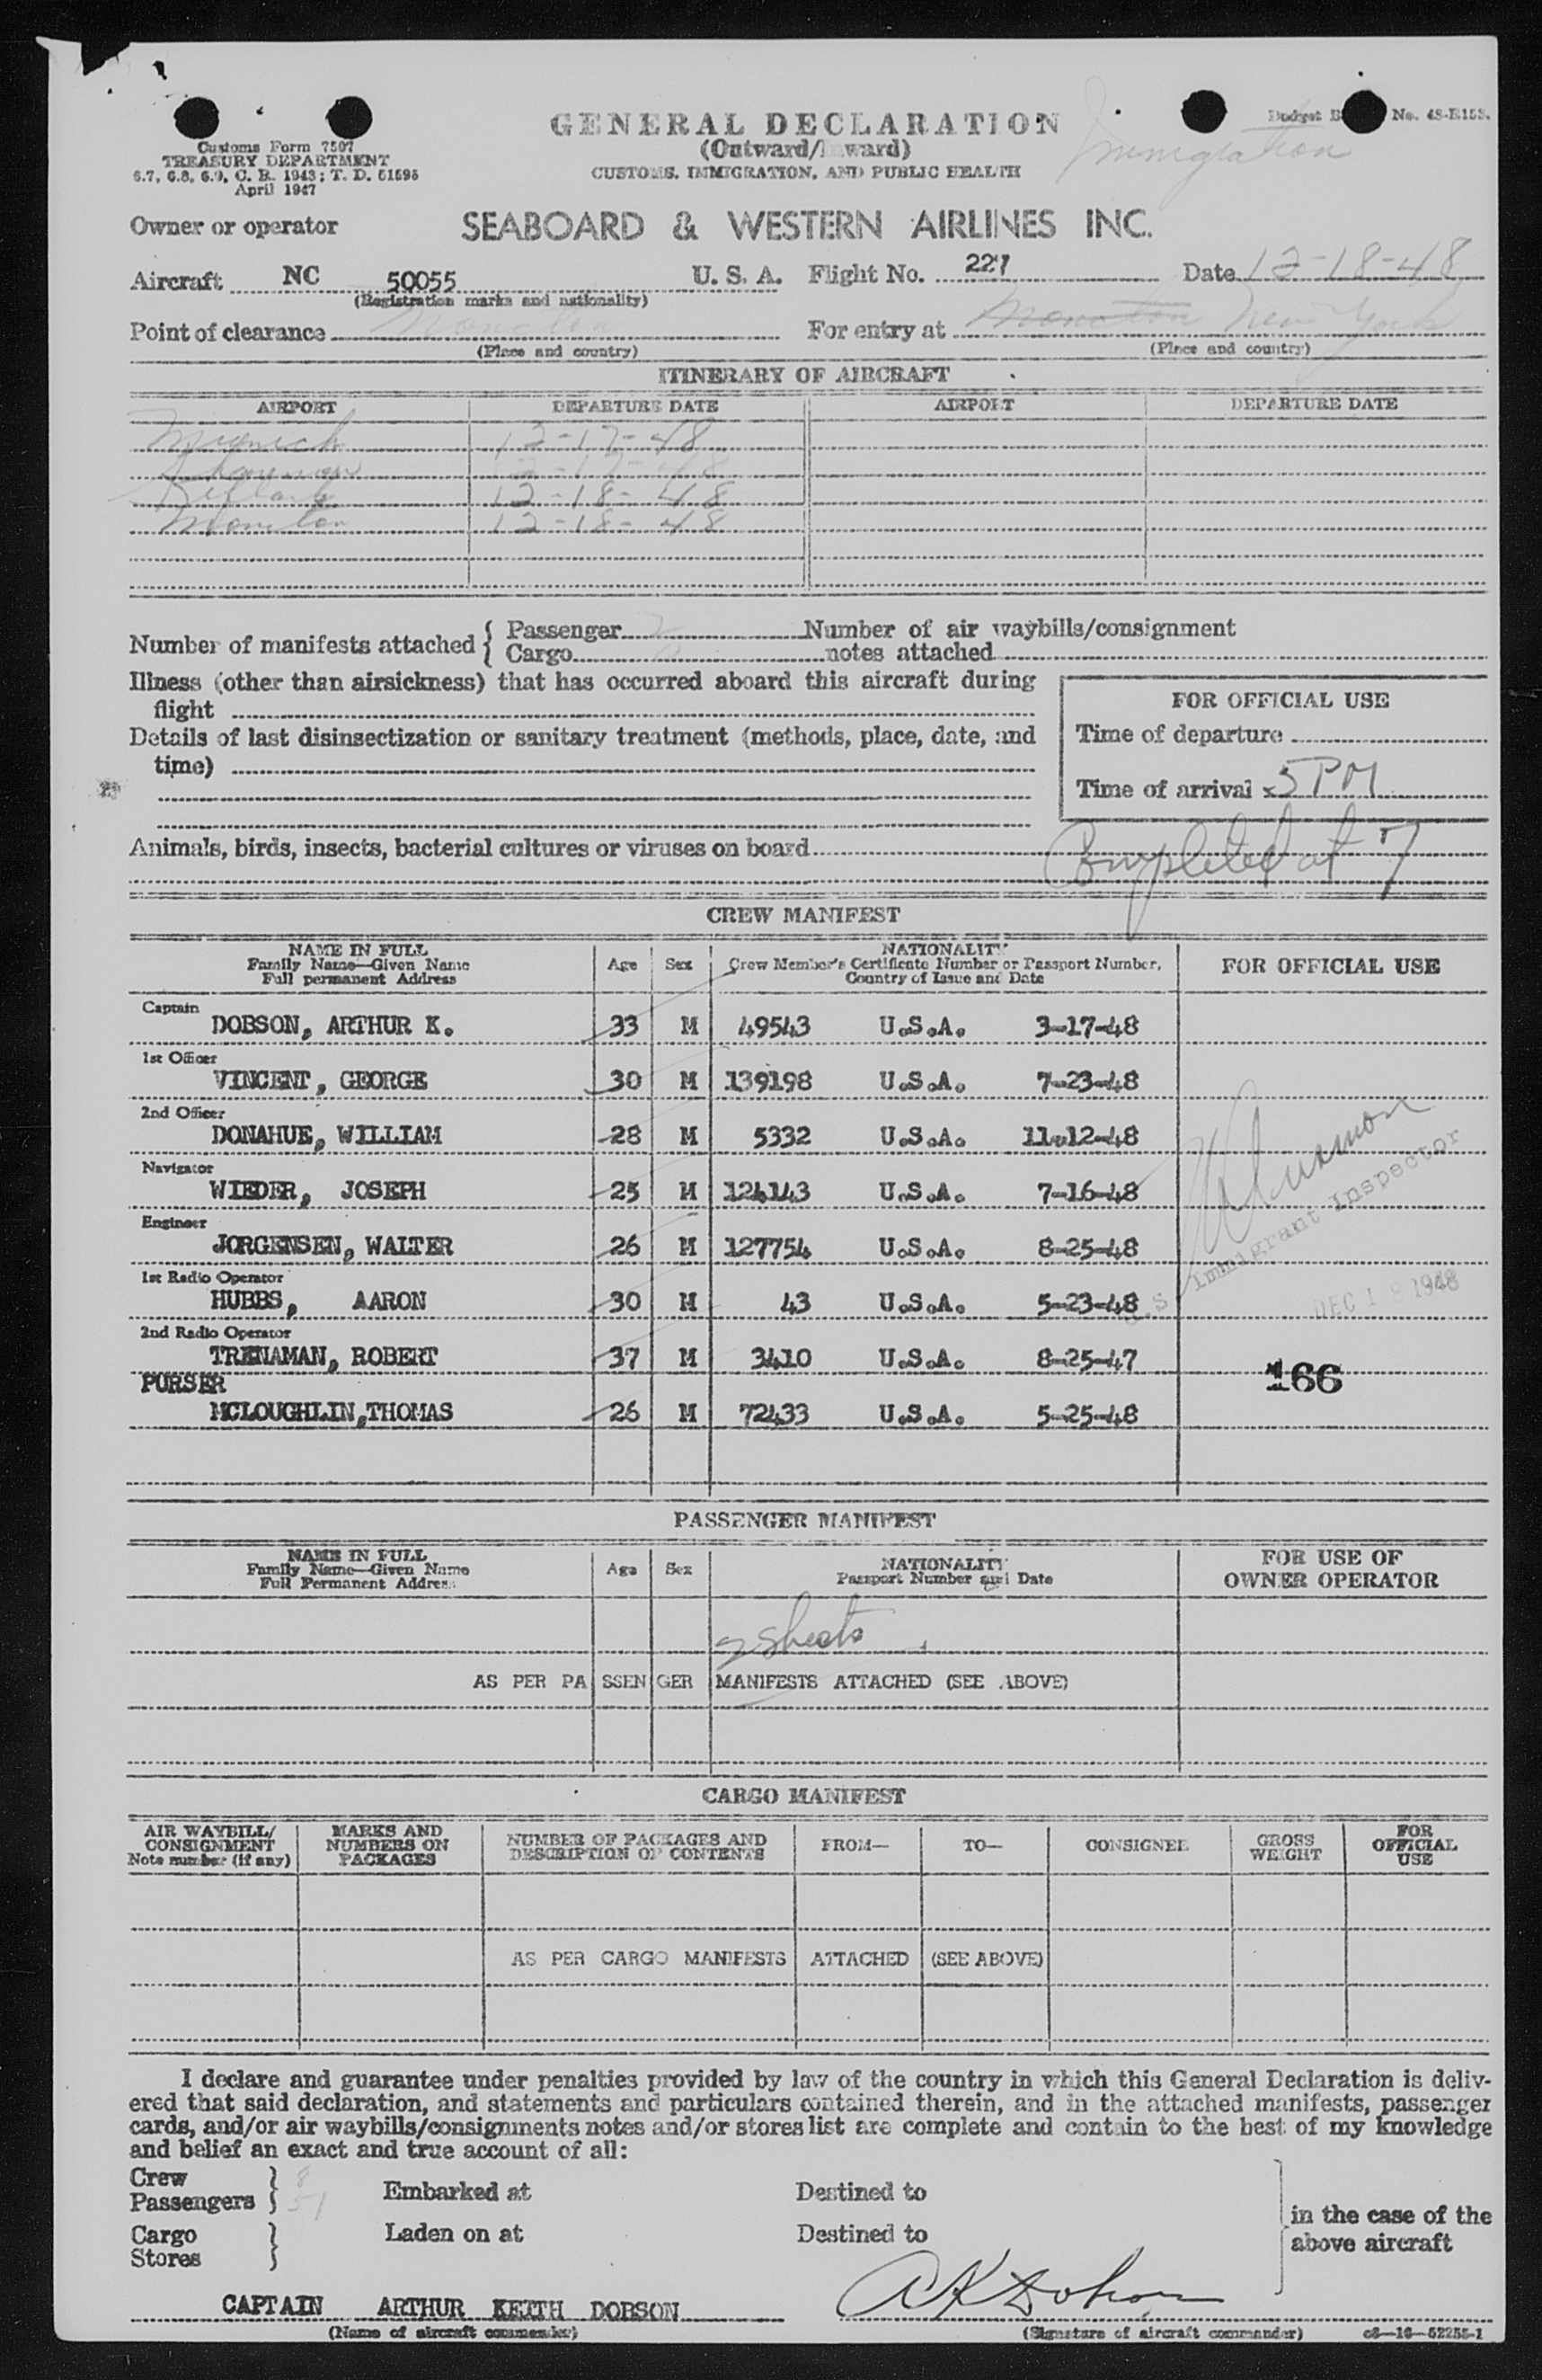 GENERAL DECLARATION
(Outward/Inward)
CUSTOMS, IMMIGRATION, AND PUBLIC HEALTH
Customs Form 7507
TREASURY DEPARTMENT
6.7, 6.8, 6.9, C. R. 1943; T. D. 51595
April 1947
Budget No. 48-R153.
Immigration
Owner or operator SEABOARD & WESTERN AIRLINES INC.
Aircraft NC 50055 U. S. A. Flight No. 227 Date 12-18-48
(Registration marks and nationality)
Point of clearance Moncton For entry at Moncton New York
(Place and country) (Place and country)
ITINERARY OF AIRCRAFT
AIRPORT DEPARTURE DATE AIRPORT DEPARTURE DATE
Munich 12-17-48
Shannon 12-17-48
12-18-48
Moncton 12-18-48
Number of manifests attached { Passenger 2 Number of air waybills/consignment
Cargo notes attached
Illness (other than airsickness) that has occurred aboard this aircraft during
flight
FOR OFFICIAL USE
Details of last disinsectization or sanitary treatment (methods, place, date, and
time)
Time of departure
Time of arrival 5 PM
Animals, birds, insects, bacterial cultures or viruses on board
Completed at 7
CREW MANIFEST
NAME IN FULL
Family Name—Given Name
Full permanent Address
Age Sex
NATIONALITY
Crew Member's Certificate Number or Passport Number,
Country of Issue and Date
FOR OFFICIAL USE
Captain
DOBSON, ARTHUR K. 33 M 49543 U.S.A. 3-17-48
1st Officer
VINCENT, GEORGE 30 M 139198 U.S.A. 7-23-48
2nd Officer
DONAHUE, WILLIAM 28 M 5332 U.S.A. 11-12-48
Navigator
WIEDER, JOSEPH 25 M 124143 U.S.A. 7-16-48
Engineer
JORGENSEN, WALTER 26 M 127754 U.S.A. 8-25-48
1st Radio Operator
HUBBS, AARON 30 M 43 U.S.A. 5-23-48
2nd Radio Operator
TRENAMAN, ROBERT 37 M 3410 U.S.A. 8-25-47
PURSER
MCLOUGHLIN,THOMAS 26 M 72433 U.S.A. 5-25-48
U.S. Immigrant Inspector
DEC 18 1948
166
PASSENGER MANIFEST
NAME IN FULL
Family Name—Given Name
Full Permanent Address
Age Sex
NATIONALITY
Passport Number and Date
FOR USE OF
OWNER OPERATOR
2 Sheets
AS PER PASSENGER MANIFESTS ATTACHED (SEE ABOVE)
CARGO MANIFEST
AIR WAYBILL/
CONSIGNMENT
Note number (if any)
MARKS AND
NUMBERS ON
PACKAGES
NUMBER OF PACKAGES AND
DESCRIPTION OF CONTENTS
FROM— TO— CONSIGNEE
GROSS
WEIGHT
FOR
OFFICIAL
USE
AS PER CARGO MANIFESTS ATTACHED (SEE ABOVE)
I declare and guarantee under penalties provided by law of the country in which this General Declaration is deliv-
ered that said declaration, and statements and particulars contained therein, and in the attached manifests, passenger
cards, and/or air waybills/consignments notes and/or stores list are complete and contain to the best of my knowledge
and belief an exact and true account of all:
Crew } 8
Passengers } 51 Embarked at Destined to
Cargo } Laden on at Destined to
Stores }
in the case of the
above aircraft
CAPTAIN ARTHUR KEITH DOBSON AK Dobson
(Name of aircraft commander) (Signature of aircraft commander) c6—16—52255-1